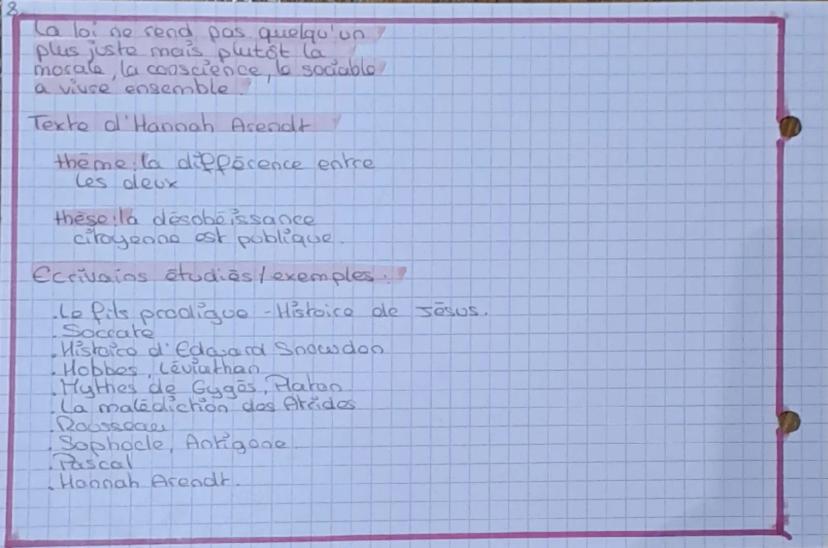 8.
La loi ne rend pas quelqu'un
plus juste mais plutôt la
morale, la conscience, le sociable
a vivre ensemble.
Texte d'Hannah Arendt
thème : la différence entre
les deux
thèse : la désobéissance
citoyenne est publique.
Ecrivains étudiés / exemples :
. Le fils prodigue - Histoire de Jésus.
. Socrate
. Histoire d'Edward Snowdon
. Hobbes, Léviathan
. Mythes de Gygès, Platon
. La malédiction des Atrides
. Rousseau
. Sophocle, Antigone
. Pascal
. Hannah Arendt.